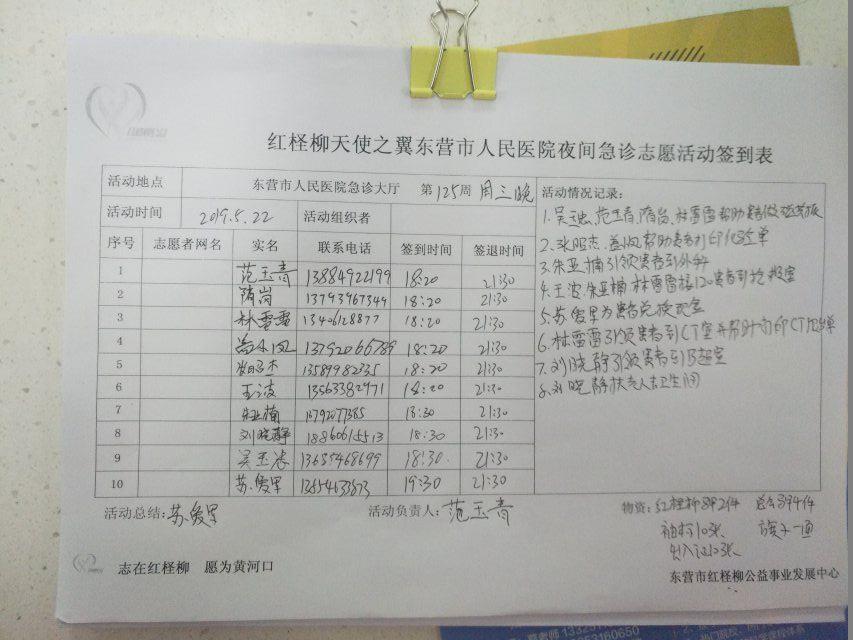 红柽柳天使之翼东营市人民医院夜间急诊志愿活动签到表
活动地点 东营市人民医院急诊大厅 第125周 周三晚
活动时间 2019.5.22 活动组织者
序号 志愿者网名 实名 联系电话 签到时间 签退时间
1 范玉青 13884922199 18:20 21:30
2 隋岗 13793967349 18:20 21:30
3 林雷雷 13406128877 18:20 21:30
4 13792066789 18:20 21:30
5 13589982335 18:20 21:30
6 王波 13563382971 18:20 21:30
7 朱亚楠 18:30 21:30
8 刘晓静 18860615513 18:30 21:30
9 13685468699 18:30 21:30
10 苏俊男 19:30 21:30
活动情况记录:
1.范玉青,隋岗,林雷雷帮助患者
2.帮助患者打印化验单
3.朱亚楠引领患者到外科
4.王波,朱亚楠,林雷雷接120患者到抢救室
5.苏俊男为患者兑换现金
6.林雷雷引领患者到CT室并帮助打印CT
7.刘晓静引领患者到B超室
8.刘晓静扶老人去卫生间
活动总结:苏俊男 活动负责人:范玉青
物资:红柽柳
袖标10张 旗子一面
出入证10张
志在红柽柳 愿为黄河口
东营市红柽柳公益事业发展中心